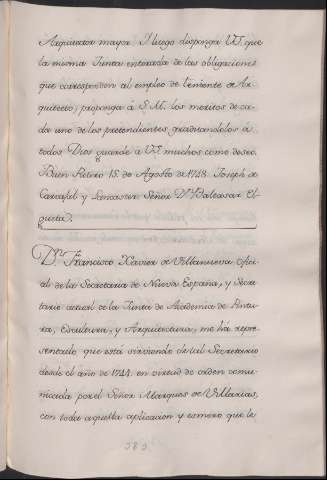 Arquitector mayor. Y luego disponga V.S. que
la misma Junta enterada de las obligaciones
que corresponden al empleo de teniente de Ar-
quitecto, proponga á S.M. los meritos de ca-
da uno de los pretendientes graduandolos á
todos. Dios guarde á V.S. muchos como deseo.
Buen Retiro 15. de Agosto de 1748. Joseph de
Carvajal y Lancaster. Señor Dn. Baltasar El-
gueta.
Dn. Francisco Xavier de Villanueva Ofici-
al de la Secretaria de Nueva España, y Secre-
tario actual de la Junta de Academia de Pintu-
ra, Escultura, y Arquitectura, me há repre-
sentado que está sirviendo de tal Secretario
desde el año de 1744. en virtud de orden comu-
nicada por el Señor Marques de Villarias,
con toda aquella aplicacion y esmero que le